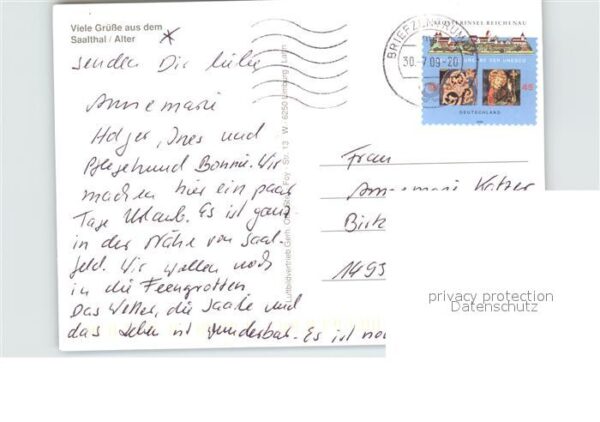 Viele Grüße aus dem
Saalthal / Alter
senden Dir liebe
Annemarie
Holger, Ines und
Pflegehund Bonnie. Wir
machen hier ein paar
Tage Urlaub. Es ist ganz
in der Nähe von Saal-
feld. Wir wollen noch
in die Feengrotten.
Das Wetter, die Saale und
das Leben ist wunderbar. Es ist
Luftbildvertrieb Gerh. Str. 13 W - 6250 Limburg / Lahn
BRIEFZENTRUM
30.-7.09.-20
KLOSTERINSEL REICHENAU
DER UNESCO
45
DEUTSCHLAND
Frau
Annemarie
Birk
1493
privacy protection
Datenschutz